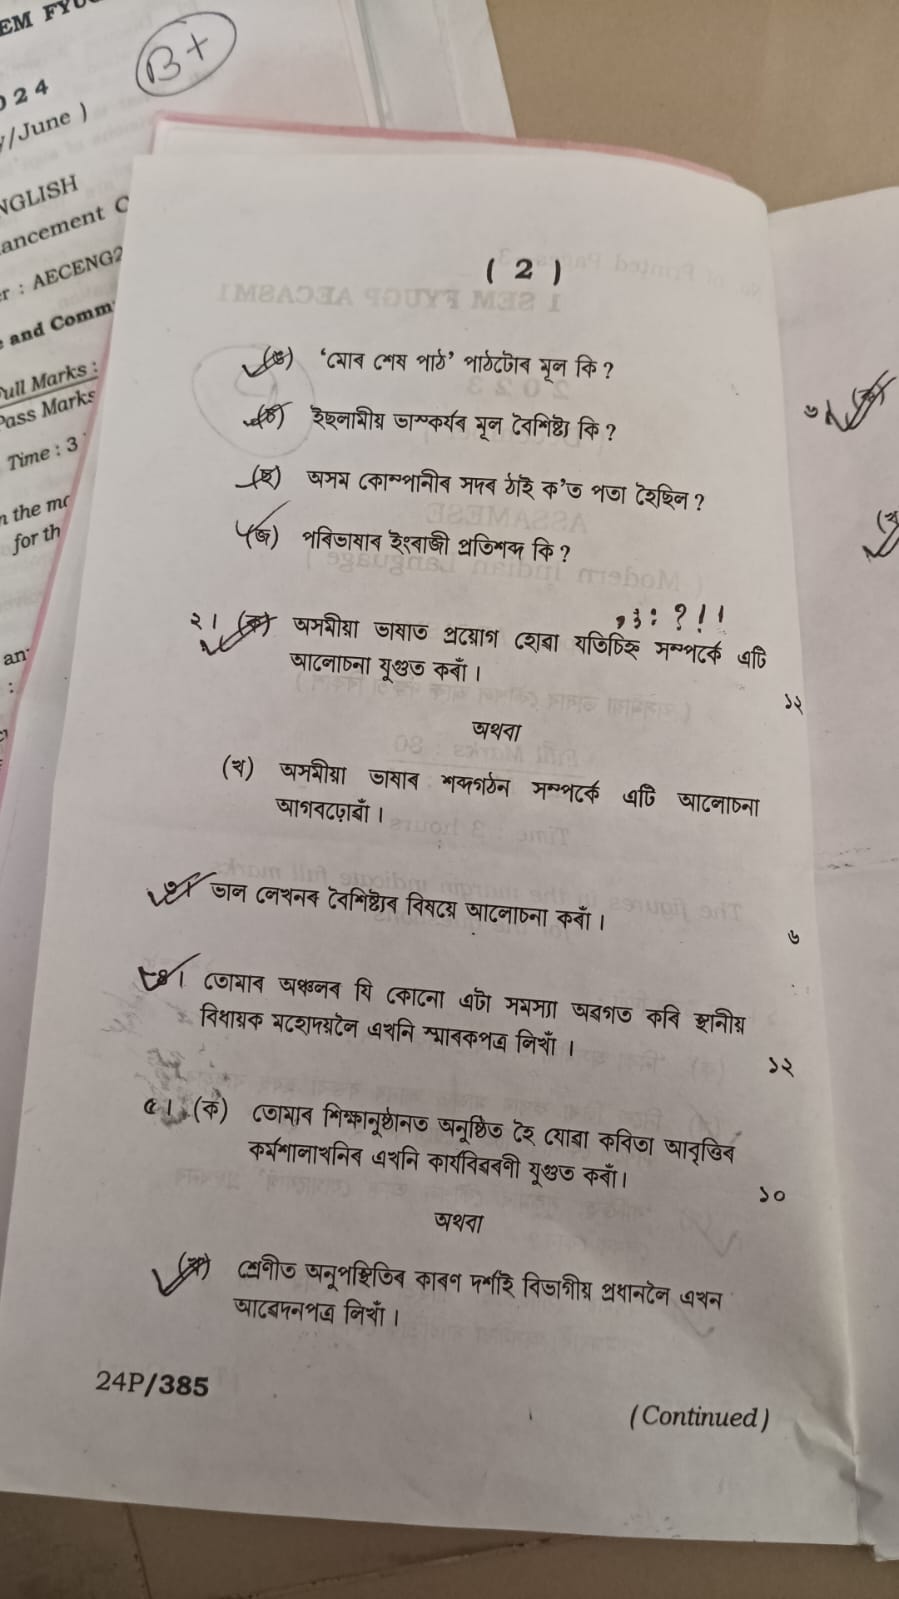 EM FYU
B+
024
y/June )
NGLISH
ancement C
r : AECENG2
e and Comm
Full Marks :
Pass Marks
Time : 3
n the
for th
an
:
( 2 )
(ঙ) ‘মোৰ শেষ পাঠ’ পাঠটোৰ মূল কি ?
(চ) ইছলামীয় ভাস্কৰ্যৰ মূল বৈশিষ্ট্য কি ?
(ছ) অসম কোম্পানীৰ সদৰ ঠাই ক’ত পতা হৈছিল ?
(জ) পৰিভাষাৰ ইংৰাজী প্ৰতিশব্দ কি ?
, ; : ? ! !
২। (ক) অসমীয়া ভাষাত প্ৰয়োগ হোৱা যতিচিহ্ন সম্পৰ্কে এটি
আলোচনা যুগুত কৰাঁ।
১২
অথবা
(খ) অসমীয়া ভাষাৰ শব্দগঠন সম্পৰ্কে এটি আলোচনা
আগবঢ়োৱাঁ।
৩। ভাল লেখনৰ বৈশিষ্ট্যৰ বিষয়ে আলোচনা কৰাঁ।
৬
৪। তোমাৰ অঞ্চলৰ যি কোনো এটা সমস্যা অৱগত কৰি স্থানীয়
বিধায়ক মহোদয়লৈ এখনি স্মাৰকপত্ৰ লিখাঁ।
১২
৫। (ক) তোমাৰ শিক্ষানুষ্ঠানত অনুষ্ঠিত হৈ যোৱা কবিতা আবৃত্তিৰ
কৰ্মশালাখনিৰ এখনি কাৰ্যবিৱৰণী যুগুত কৰাঁ।
১০
অথবা
(খ) শ্ৰেণীত অনুপস্থিতিৰ কাৰণ দৰ্শাই বিভাগীয় প্ৰধানলৈ এখন
আৱেদনপত্ৰ লিখাঁ।
24P/385
(Continued)
৬। (ক)
(খ